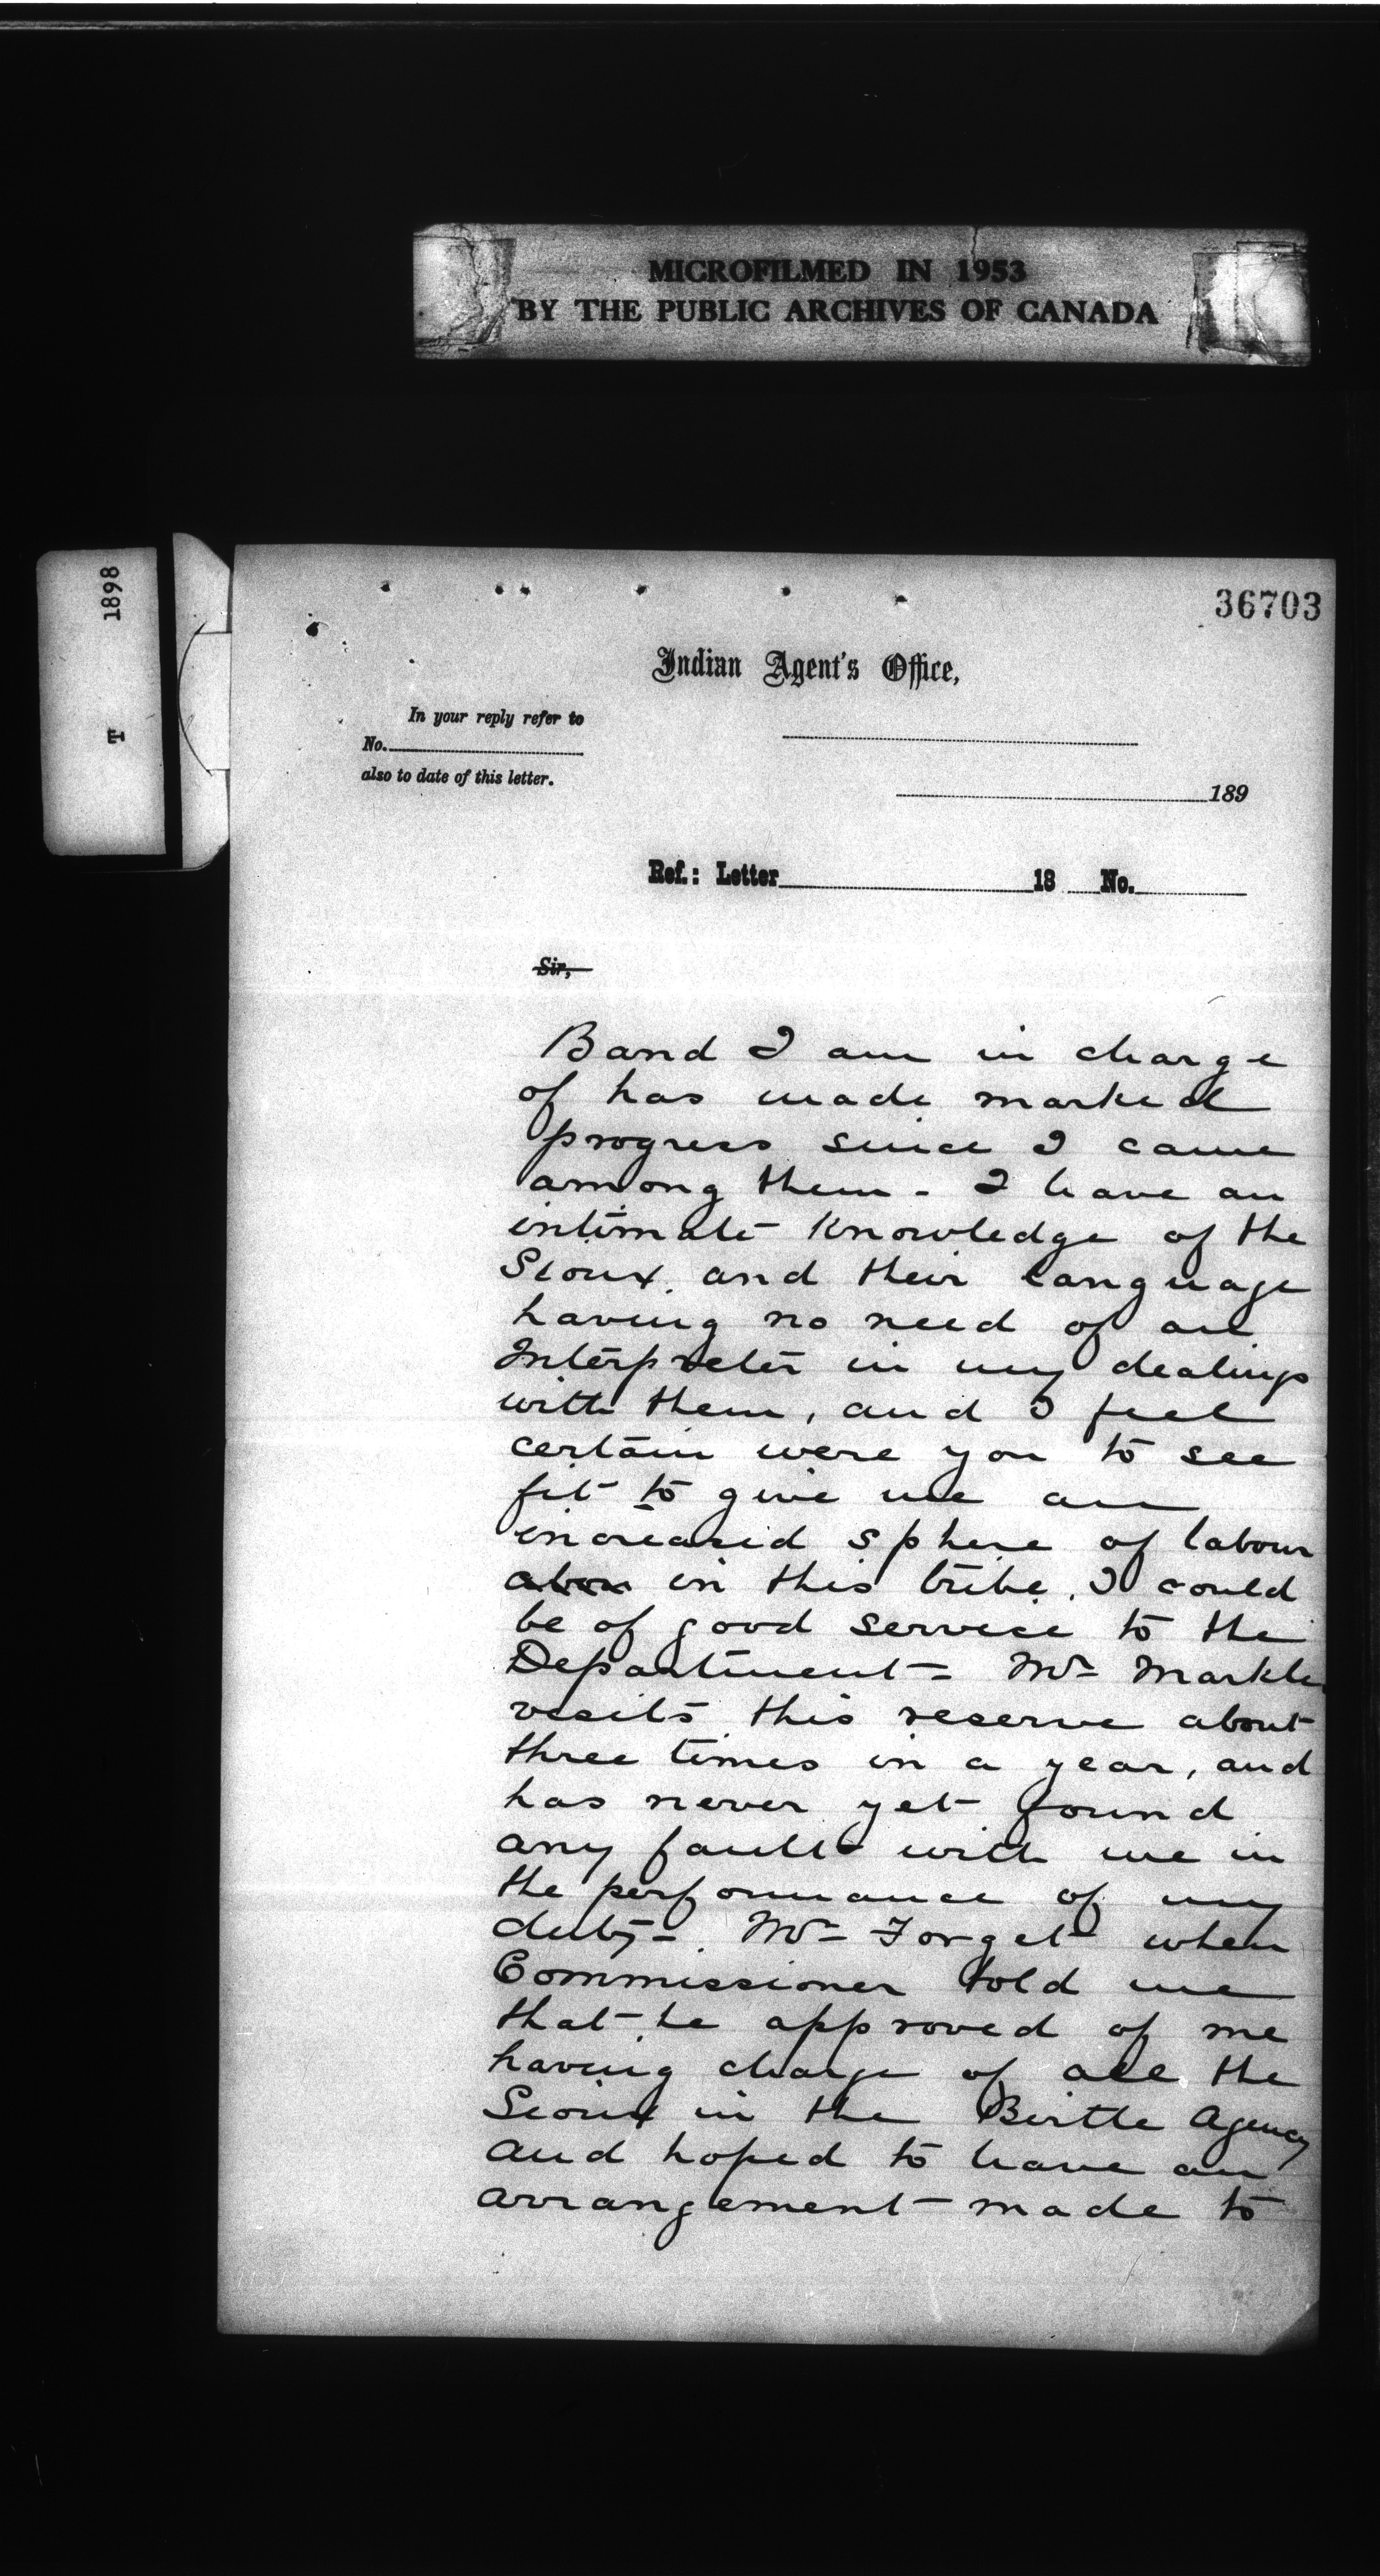 MICROFILMED IN 1953
BY THE PUBLIC ARCHIVES OF CANADA
T 1898
36703
Indian Agent's Office,
In your reply refer to
No.
also to date of this letter.
189
Ref.: Letter 18 No.
Sir,
Band I am in charge
of has made marked
progress since I came
among them - I have an
intimate knowledge of the
Sioux and their language
having no need of an
Interpreter in my dealings
with them, and I feel
certain were you to see
fit to give me an
increased sphere of labour
in this tribe, I could
be of good service to the
Department - Mr Markle
visits this reserve about
three times in a year, and
has never yet found
any fault with me in
the performance of my
duty -. Mr - Forget when
Commissioner told me
that he approved of me
having charge of all the
Sioux in the Birtle Agency
and hoped to have an
arrangement made to